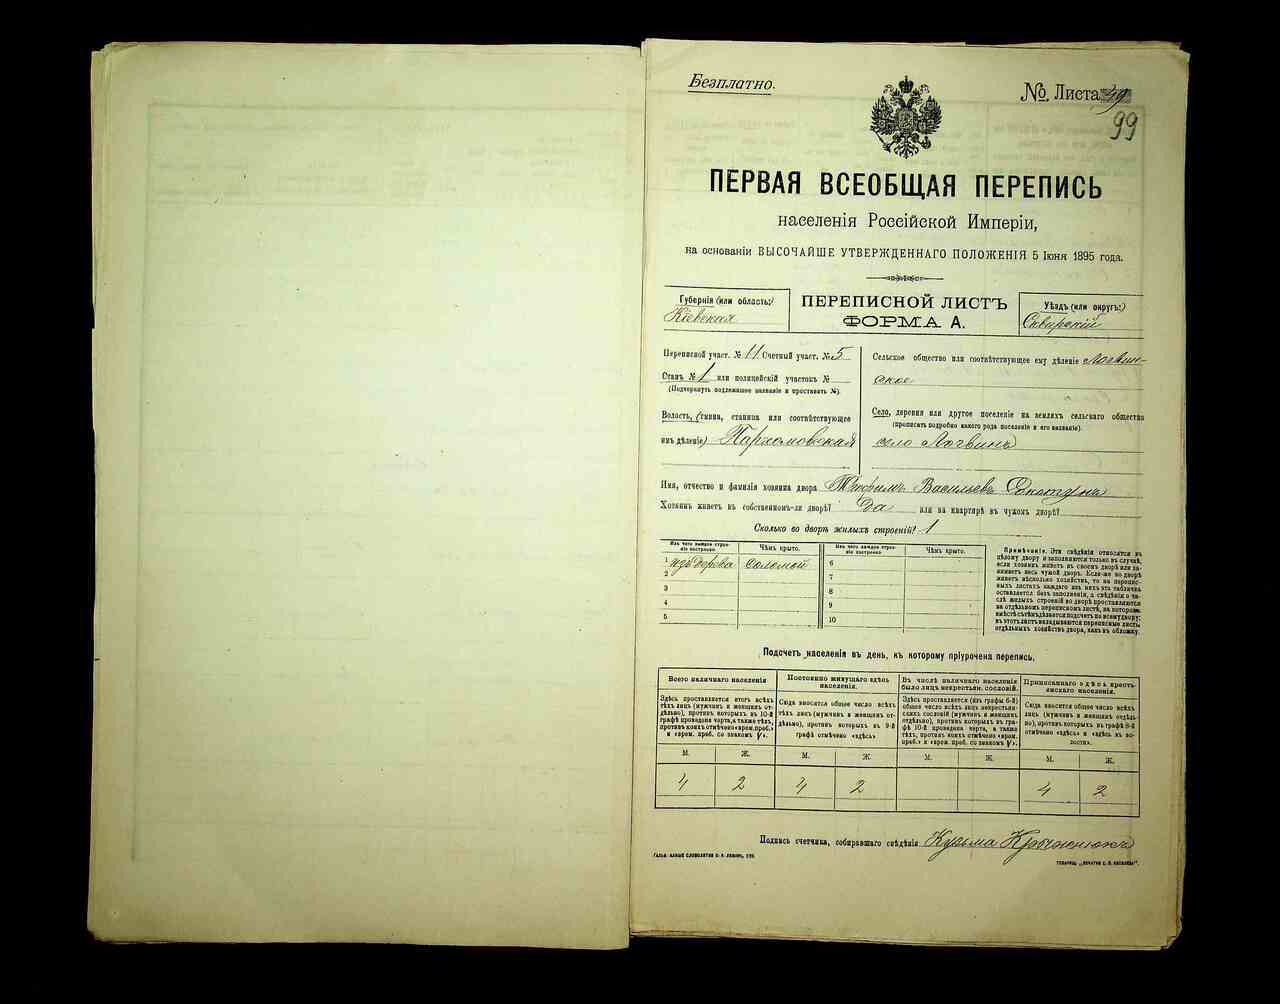 Безплатно.
№ Листа 49
99
ПЕРВАЯ ВСЕОБЩАЯ ПЕРЕПИСЬ
населенія Россійской Имперіи,
на основаніи ВЫСОЧАЙШЕ УТВЕРЖДЕННАГО ПОЛОЖЕНІЯ 5 Іюня 1895 года.
Губернія (или область:)
Кіевская
ПЕРЕПИСНОЙ ЛИСТЪ
ФОРМА А.
Уѣздъ (или округъ:)
Сквирскій
Переписной участ. № 11 Счетный участ. № 5
Станъ № 1 или полицейскій участокъ №
(Подчеркнуть подлежащее названіе и проставить №).
Волость, (гмина, станица или соотвѣтствующее
имъ дѣленіе) Пархомовская
Сельское общество или соотвѣтствующее ему дѣленіе Логвин-
ское
Село, деревня или другое поселеніе на земляхъ сельскаго общества
(прописать подробно какого рода поселеніе и его названіе).
село Логвинъ
Имя, отчество и фамилія хозяина двора Трофимъ Васильевъ
Хозяинъ живетъ въ собственномъ-ли дворѣ? Да или на квартирѣ въ чужомъ дворѣ?
Сколько во дворѣ жилыхъ строеній? 1
Изъ чего каждое строе-
ніе построено
Чѣмъ крыто.
Изъ чего каждое строе-
ніе построено
Чѣмъ крыто.
1 изъ дерева соломой
2
3
4
5
6
7
8
9
10
Примѣчаніе. Эти свѣдѣнія относятся къ
цѣлому двору и заполняются только въ случаѣ,
если хозяинъ живетъ въ своемъ дворѣ или за-
нимаетъ весь чужой дворъ. Если-же во дворѣ
живетъ нѣсколько хозяйствъ, то на перепис-
ныхъ листахъ каждаго изъ нихъ эта табличка
оставляется безъ заполненія, а свѣдѣнія о чи-
слѣ жилыхъ строеній во дворѣ проставляются
на отдѣльномъ переписномъ листѣ, на которомъ
вмѣстѣ съ тѣмъ дѣлается подсчетъ по всему двору;
въ этотъ листъ вкладываются переписные листы
отдѣльныхъ хозяйствъ двора, какъ въ обложку.
Подсчетъ населенія въ день, къ которому пріурочена перепись.
Всего наличнаго населенія
Постоянно живущаго здѣсь
населенія.
Въ числѣ наличнаго населенія
было лицъ некрестьян. сословій.
Приписаннаго здѣсь кресть-
янскаго населенія.
Здѣсь проставляется итогъ всѣхъ
тѣхъ лицъ (мужчинъ и женщинъ от-
дѣльно), противъ которыхъ въ 10-й
графѣ проведена черта, а также тѣхъ,
противъ коихъ отмѣчено «врем. преб.»
и «врем. преб. со знакомъ V».
Сюда вносится общее число всѣхъ
тѣхъ лицъ (мужчинъ и женщинъ от-
дѣльно), противъ которыхъ въ 9-й
графѣ отмѣчено «здѣсь»
Здѣсь проставляется (изъ графы 6-й)
общее число всѣхъ лицъ некрестьян-
скихъ сословій (мужчинъ и женщинъ
отдѣльно), противъ которыхъ въ гра-
фѣ 10-й проведена черта, а также
тѣхъ, противъ коихъ отмѣчено «врем.
преб.» и «врем. преб. со знакомъ V».
Сюда вносится общее число всѣхъ
лицъ (мужчинъ и женщинъ отдѣль-
но), противъ которыхъ въ графѣ 8-й
отмѣчено «здѣсь» и «здѣсь въ во-
лости».
М. Ж. М. Ж. М. Ж. М. Ж.
4 2 4 2 4 2
Подпись счетчика, собиравшаго свѣдѣнія Кузьма